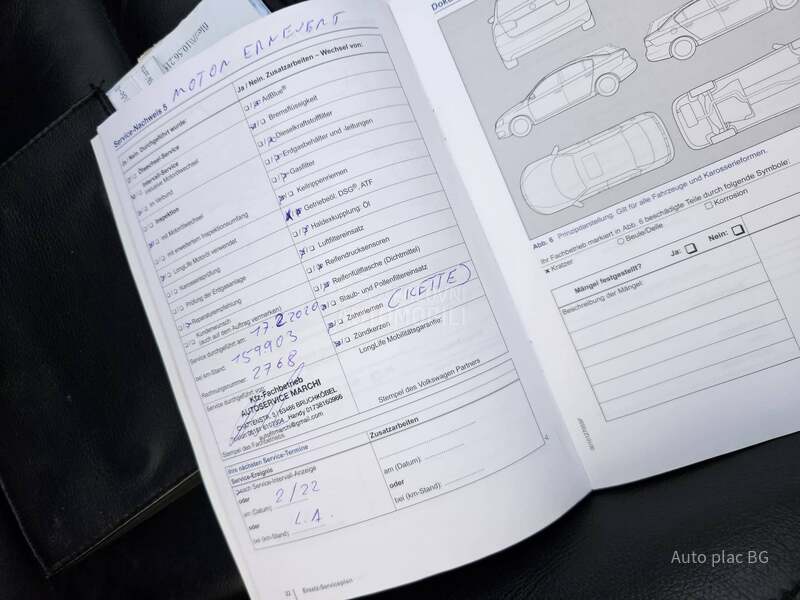 file:///10.56.21
MOTOR ERNEUERT
Service-Nachweis 5
Ja / Nein. Durchgeführt wurde:
Ölwechsel-Service
Intervall-Service
inklusive Motorölwechsel
im Verbund
Inspektion
mit Motorölwechsel
mit erweitertem Inspektionsumfang
LongLife Motoröl verwendet
Karosserieprüfung
Prüfung der Erdgasanlage
Reparaturempfehlung
Kundenwunsch
(auch auf dem Auftrag vermerken)
Service durchgeführt am: 17.2.2020
bei km-Stand: 159903
Rechnungsnummer: 2768
Service durchgeführt von:
Kfz-Fachbetrieb
AUTOSERVICE MARCHI
63486 BRUCHKÖBEL
Handy 01738160966
Stempel des Fachbetriebs
Ja / Nein. Zusatzarbeiten – Wechsel von:
AdBlue®
Bremsflüssigkeit
Dieselkraftstofffilter
Erdgasbehälter und -leitungen
Gasfilter
Keilrippenriemen
Getriebeöl, DSG®, ATF
Haldexkupplung: Öl
Luftfiltereinsatz
Reifendrucksensoren
Reifenfüllflasche (Dichtmittel)
Staub- und Pollenfiltereinsatz
Zahnriemen (KETTE)
Zündkerzen
LongLife Mobilitätsgarantie:
Stempel des Volkswagen Partners
Ihre nächsten Service-Termine
Service-Ereignis
nach Service-Intervall-Anzeige
oder
am (Datum): 2/22
oder
bei (km-Stand): L.A.
Zusatzarbeiten
am (Datum):
oder
bei (km-Stand):
32 Ersatz-Serviceplan
Abb. 6 Prinzipdarstellung. Gilt für alle Fahrzeuge und Karosserieformen.
Ihr Fachbetrieb markiert in Abb. 6 beschädigte Teile durch folgende Symbole:
× Kratzer
Beule/Delle
Korrosion
Mängel festgestellt?
Ja:
Nein:
Beschreibung der Mängel:
Auto plac BG